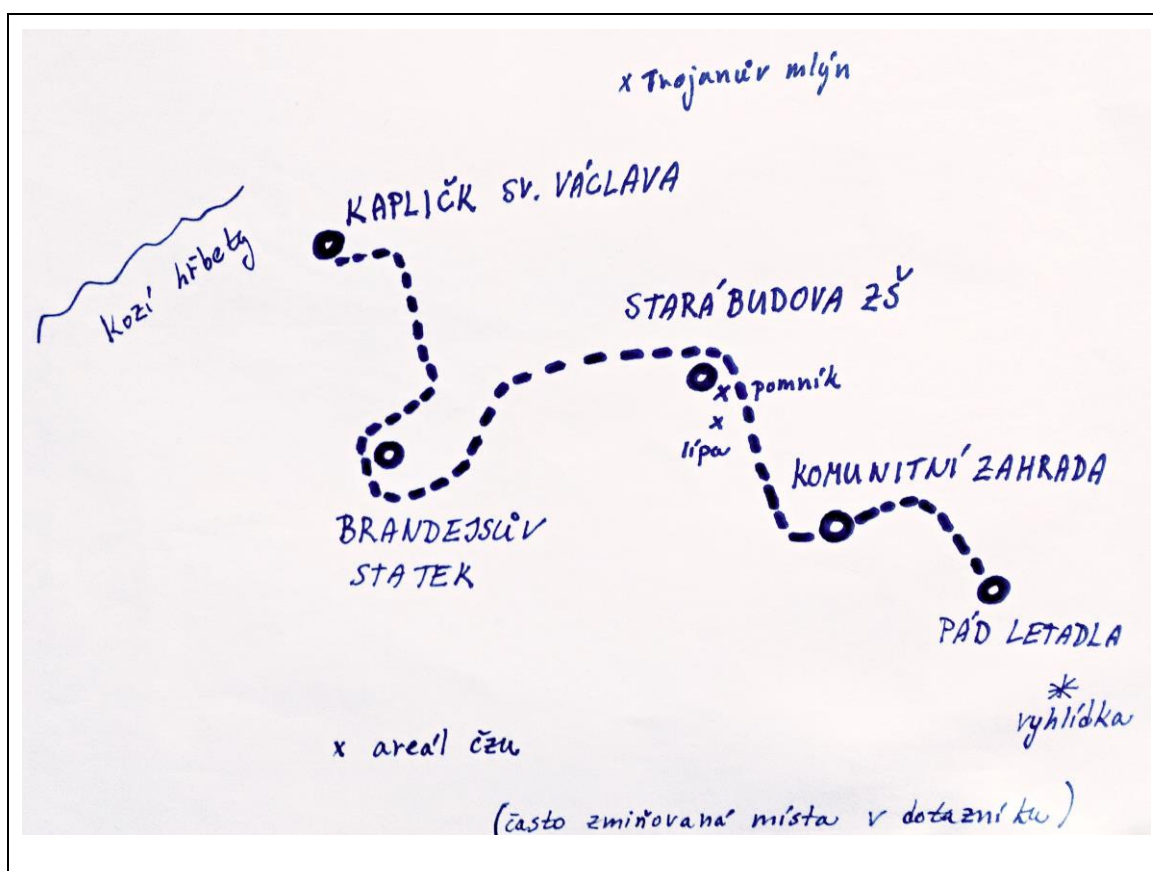 x Trojanův mlýn
KAPLIČK SV. VÁCLAVA
Kozí hřbety
STARÁ BUDOVA ZŠ
x pomník
x
lípa
KOMUNITNÍ ZAHRADA
BRANDEJSŮV
STATEK
PÁD LETADLA
vyhlídka
x areál čzu
(často zmiňovaná místa v dotazníku)